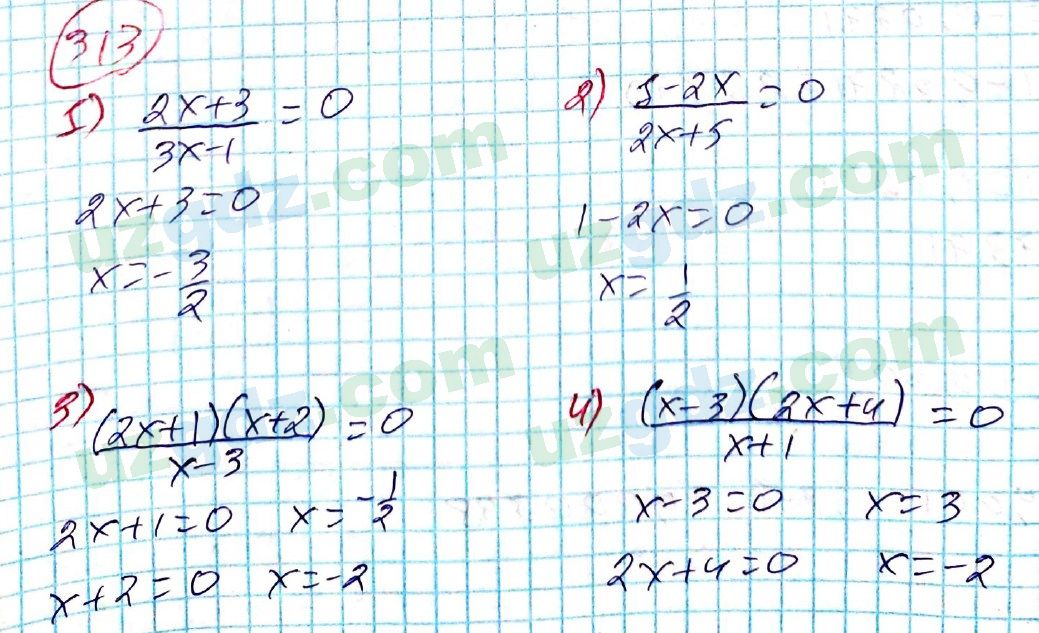 313
1) (2x+3)/(3x-1) = 0
2x+3=0
x=-3/2
2) (1-2x)/(2x+5) = 0
1-2x=0
x=1/2
3) ((2x+1)(x+2))/(x-3) = 0
2x+1=0 x=-1/2
x+2=0 x=-2
4) ((x-3)(2x+4))/(x+1) = 0
x-3=0 x=3
2x+4=0 x=-2
uzgdz.com
uzgdz.com
uzgdz.com
uzgdz.com